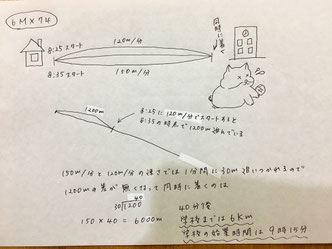 6M×74
120m/分
同時に着く
8:25スタート
8:35スタート
150m/分
1200m
8:25に120m/分でスタートすると
8:35の時点で1200m進んでいる
150m/分と120m/分の速さでは1分間に30m追いつかれるので
1200mの差が無くなって同時に着くのは
40
30)1200
40分後
150×40=6000m
学校までは6Km
学校の始業時間は9時15分